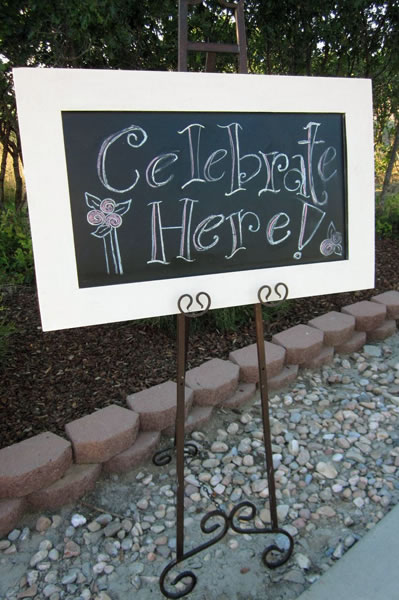 Celebrate
Here!